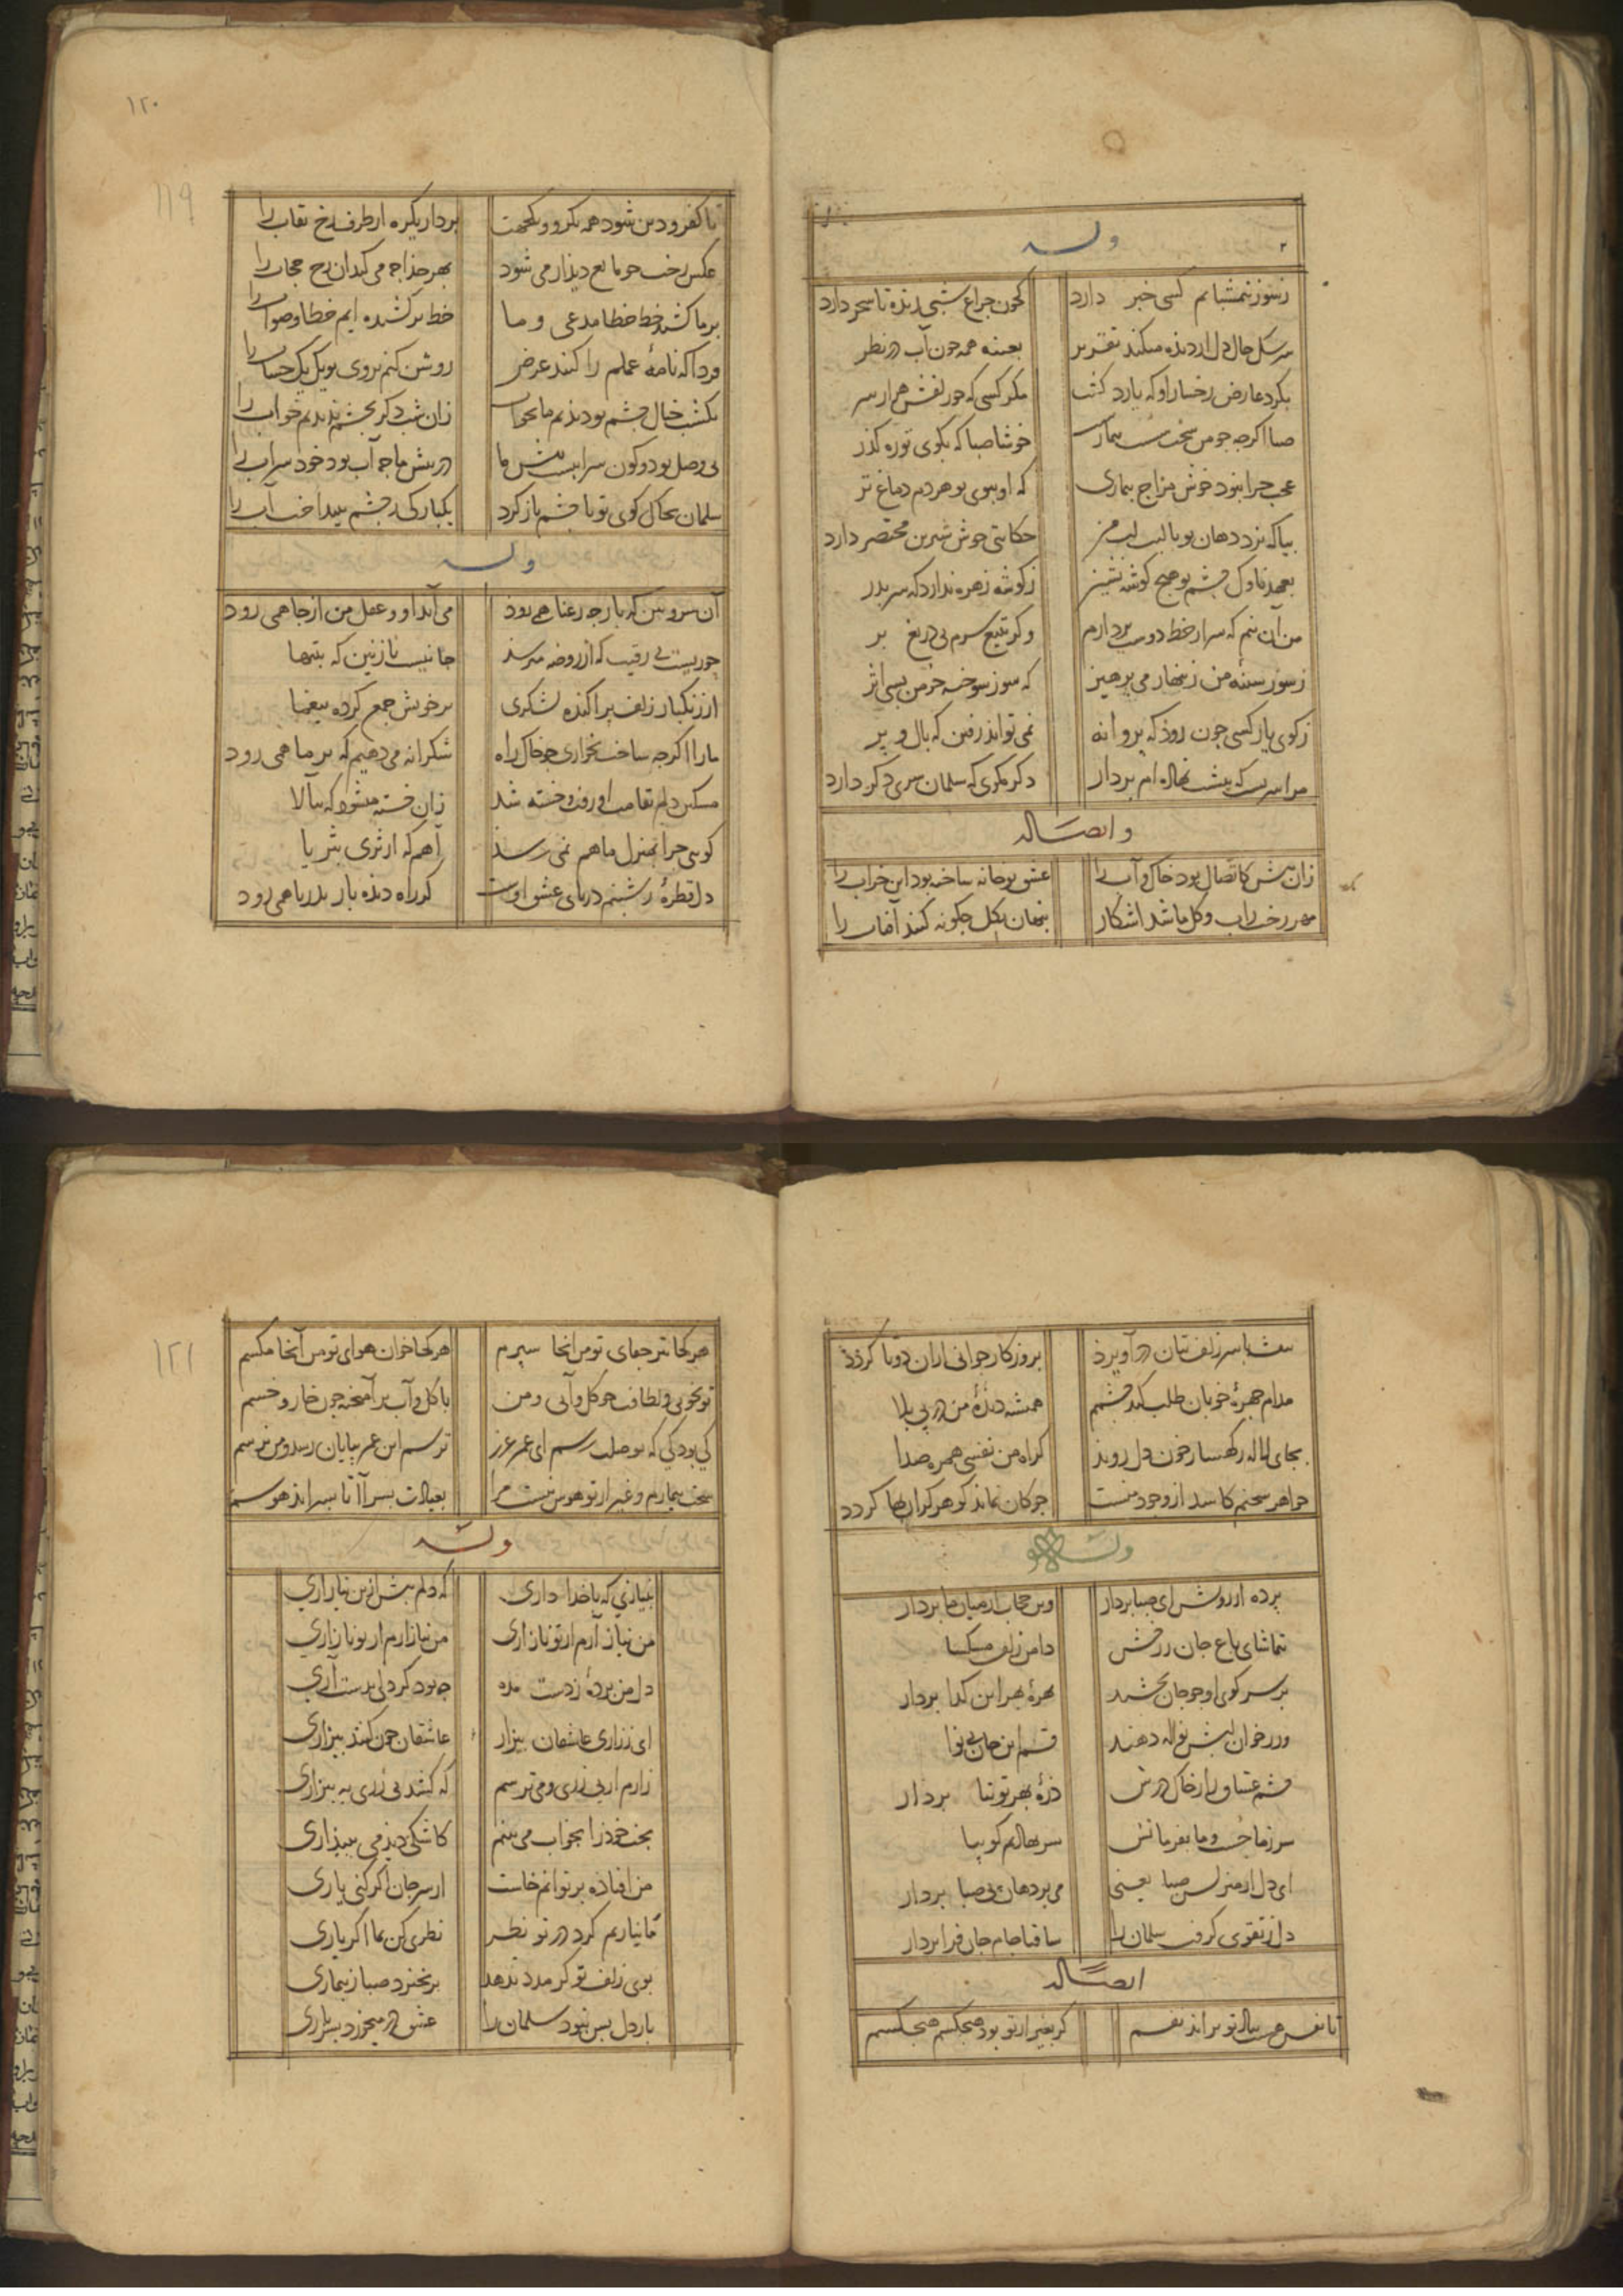 وله
ز سوز نیمشبانم کسی خبر دارد کجون جراغ شبی زنده تا سحر دارد
سرشک حال دل از دیده میکند تقریر بعینه همه جون آب در نظر
بکرد عارض رخسار او که یارد کشت مکر کسی که جو زلفش هزار سر
صبا اکرجه جو من سخت سست بیمارست خوشا صبا که بکوی تو ره کذر
عجب جرا نبود خوش مزاج بیماری که او ببوی تو هر دم دماغ تر
بیا که نزد دهان تو با لب لب من حکایتی خوش شیرین مختصر دارد
بعهد ناوک جشم تو هیج کوشه نشین ز کوشه زهره ندارد که سر بدر
من آن نیم که سر از خط دوست بردارم و کر بتیغ سرم بی دریغ بر
ز سوز سینهٔ من زینهار می پرهیز که سوز سوخته خرمن بسی اثر
ز کوی یار کسی جون روذ که بروانه نمی تواند رفتن که بال و پر
مرا سریست که بیشت نهاده ام بردار دکر مکوی که سلمان سری دکر دارد
و ایضا له
زان پیش کاتصال بود خاک و آب را عشق تو خانه ساخته بود این خراب را
مهر رخت ز آب و کل ما شد آشکار پنهان بکل جکونه کنند آفتاب را
۱۲۰
۱۱۹
تا کفر و دین شود همه یکرو و یکجهت بردار یکره از طرف رخ نقاب را
عکس رخت جو مانع دیدار می شود بهر خدا جه می کند آن رخ حجاب را
بر ما کشد خط خطا مدعی و ما خط بر کشیده ایم خطا و صواب را
فردا که نامهٔ عملم را کنند عرض روشن کنم بروی تو یک یک حساب را
یکشب خیال جشم تو دیدیم ما بخواب زان شب دکر بجشم ندیدیم خواب را
بی وصل تو دو کون سرابیست پیش ما در پیش ما جه آب بود خود سراب را
سلمان بخاک کوی تو تا جشم باز کرد یکبارکی ز جشم بینداخت آب را
وله
آن سرو بین که باز جه رعنا همی رود می آید او و عقل من از جا همی رود
حوریست بی رقیب که از روضه میرسد جانیست نازنین که بتنها
از زنکبار زلف براکنده لشکری بر خویش جمع کرده بیغما
ما را اکرجه ساخت بخواری جو خاک راه شکرانه می دهیم که بر ما همی رود
مسکین دلم بقامت او رفت و خسته شد زان خسته میشود که ببالا
کویی جرا بمنزل ما هم نمی رسد آهم که از ثری بثریا
دل قطرهٔ ز شبنم دریای عشق اوست کز راه دیده باز بدریا همی رود
ببست با سر زلف بتان در آویزد بروزکار جوانی از آن دوتا کردد
مدام جهرهٔ خوبان طلب کند جشمم همیشه دیدهٔ من در پی بلا
بجای لاله ز کهسار خون دل روید کر آه من نفسی همره صدا
جواهر سخنم کاسد از وجود منست جو کان نماند کوهر کران بها کردد
وله
برده از روش ای صبا بردار وین حجاب از میان ما بردار
تماشای باغ جان ز رخش دامن زلف مشکسا
بر سر کوی او جو جان بخشند بهرهٔ بهر این کدا بردار
ور ز خوان لبش نواله دهند قسم این جان بی نوا
جشم عشاق را ز خاک درش ذرهٔ بهر توتیا بردار
سر ز ما جست و ما بفرمانش سر نهادیم کو بیا
ای دل از منزلش صبا یعنی می بردهان پی صبا بردار
دل ز تقوی کرفت سلمان را ساقیا جام جان فزا بردار
ایضا له
تا نفس هست بیاد تو بر آید نفسم کر بغیر از تو بود هیجکسم هیجکسم
۱۲۱
هر کجا تیر جفای تو من آنجا سپرم هر کجا خوان هوای تو من آنجا مکسم
تو بخوبی و لطافت جو کل و آبی و من با کل و آب بر آمیخته جون خار و خسم
کی بود کی که بوصلت رسم ای عمر عزیز ترسم این عمر بپایان رسد و من نرسم
سخت بیمارم و غیر از تو هوس نیست مرا بعیادت بسر آ تا بسر آید هوسم
وله
بنیازی که با خدا داری که دلم بیش ازین نیازاری
من نیاز آرم ار تو ناز آری من نیازارم ار تو نازاری
دل من بردهٔ ز دست مده جه بود کر دلی بدست آری
ای ز زاری عاشقان بیزار عاشقان جون کنند بیزاری
زارم از بی زری و می ترسم که کشند بی زری به بیزاری
بخت خود را بخواب می بینم کاشکی دیدمی ببیداری
من افتاده بر توانم خاست از سر جان اکر کنی یاری
ما نیاریم کرد در تو نظر نظری کن بما اکر یاری
بوی زلف تو کر مدد ندهد بر نخیزد صبا ز بیماری
یار دل بس نبود سلمان را عشق در میخورد بسر باری